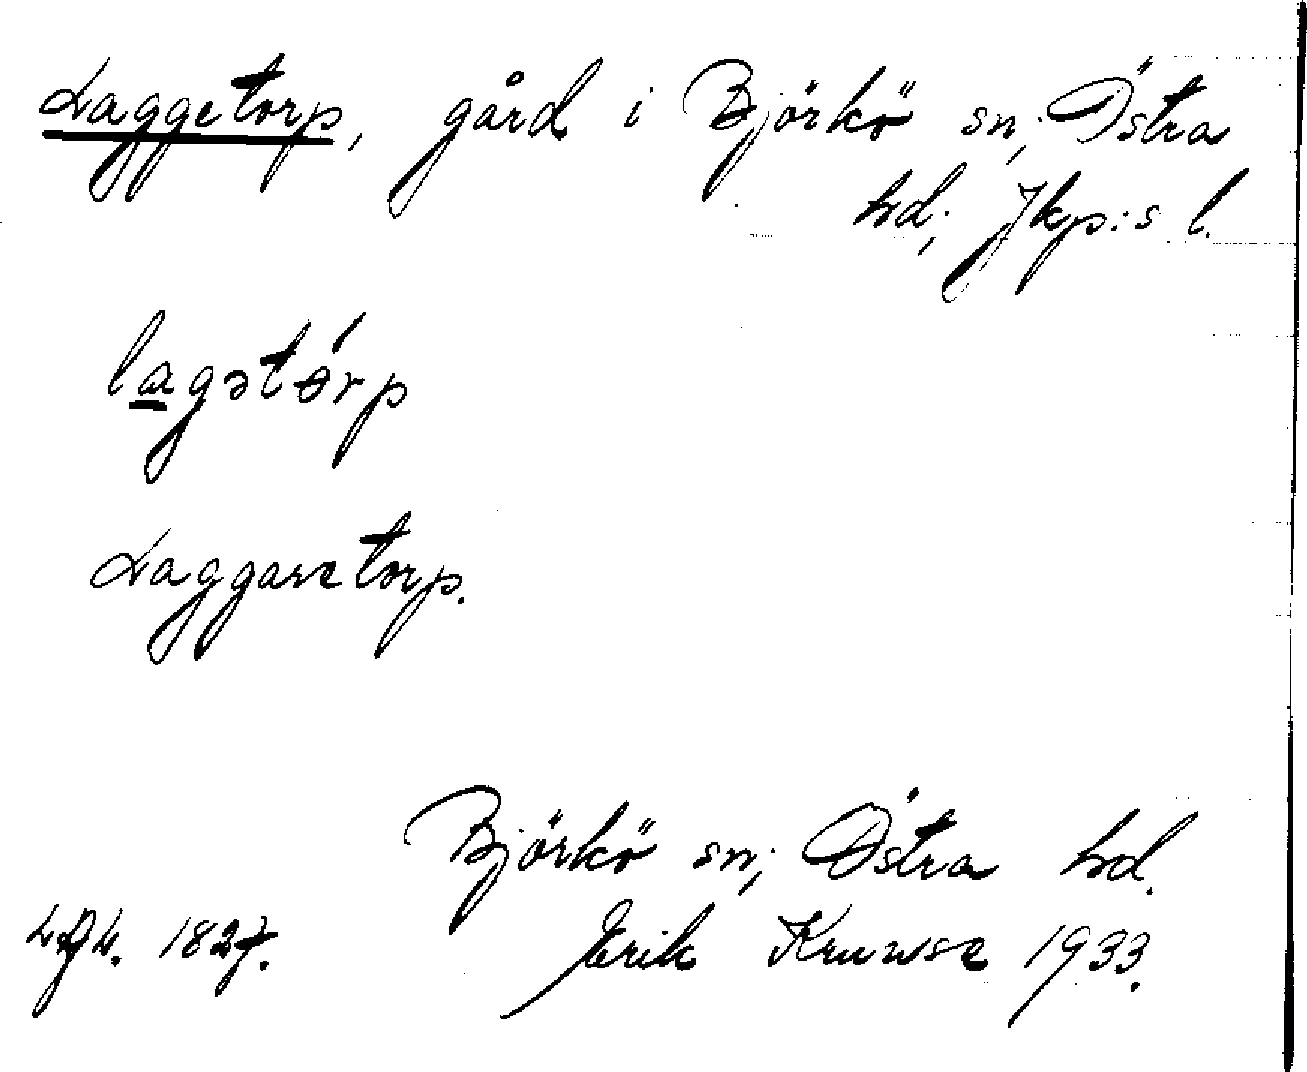 Laggetorp, gård i Björkö sn, Östra
hd, Jkp:s l.
lagətórp
Laggaretorp.
Björkö sn, Östra hd.
1827. Erik Kruwse 1933.